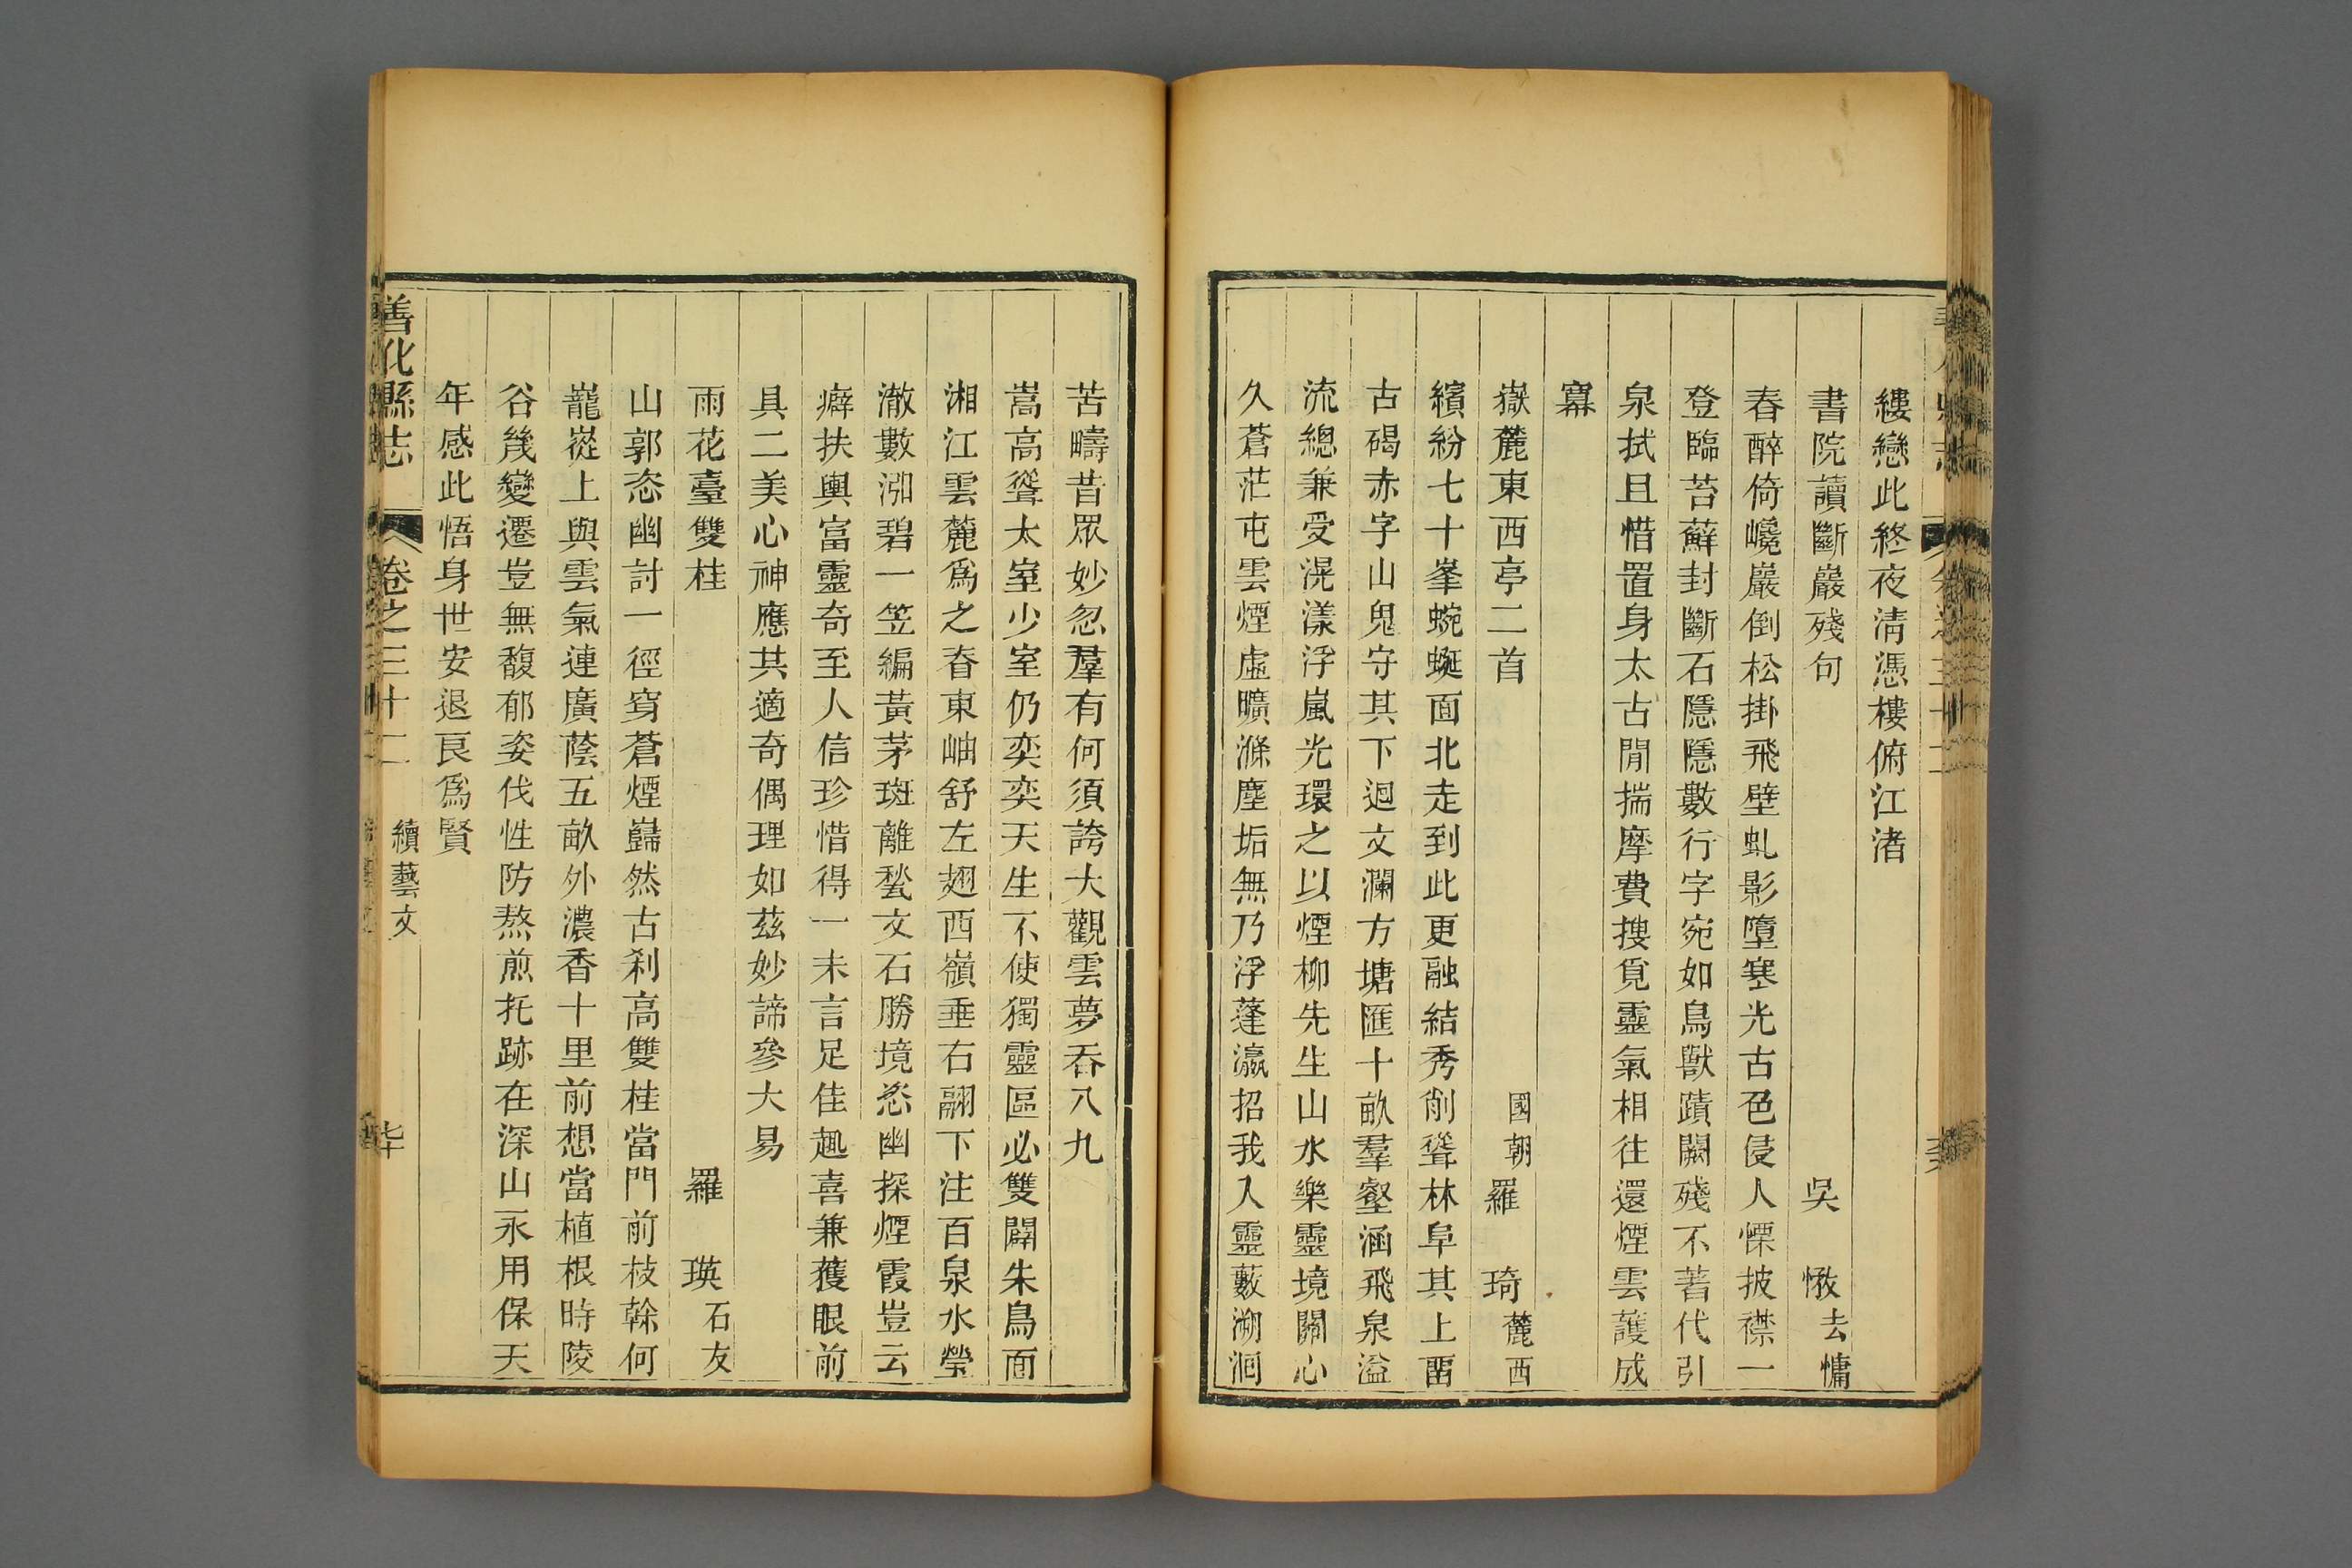 縷戀此終夜清憑樓俯江渚
書院讀斷巖殘句 吳 㦛去慵
春醉倚巉巖倒松掛飛壁虬影墮寒光古色侵人慄披襟一
登臨苔蘚封斷石隱隱數行字宛如鳥獸蹟闕殘不著代引
泉拭且惜置身太古閒揣摩費搜覓靈氣相往還煙雲護成
冪
嶽麓東西亭二首 國朝羅 琦麓西
繽紛七十峯蜿蜒面北走到此更融結秀削聳林阜其上畱
古碣赤字山鬼守其下迴文瀾方塘匯十畝羣壑涵飛泉溢
流總兼受滉漾浮嵐光環之以煙柳先生山水樂靈境闢心
久蒼茫屯雲煙虛曠滌塵垢無乃浮蓬瀛招我入靈藪溯洄
苦疇昔眾妙忽羣有何須誇大觀雲夢吞八九
嵩高聳太室少室仍奕奕天生不使獨靈區必雙闢朱鳥面
湘江雲麓爲之脊東岫舒左翅西嶺垂右翮下注百泉水瑩
澈數泓碧一笠編黃茅斑離甃文石勝境恣幽探煙霞豈云
癖扶輿富靈奇至人信珍惜得一未言足佳趣喜兼獲眼前
具二美心神應其適奇偶理如茲妙諦參大易
雨花臺雙桂 羅 瑛石友
山郭恣幽討一徑穿蒼煙巋然古刹高雙桂當門前枝榦何
巃嵸上與雲氣連廣蔭五畝外濃香十里前想當植根時陵
谷幾變遷豈無馥郁姿伐性防熬煎托跡在深山永用保天
年感此悟身世安退良爲賢
善化縣志 卷之三十二 續藝文 七十